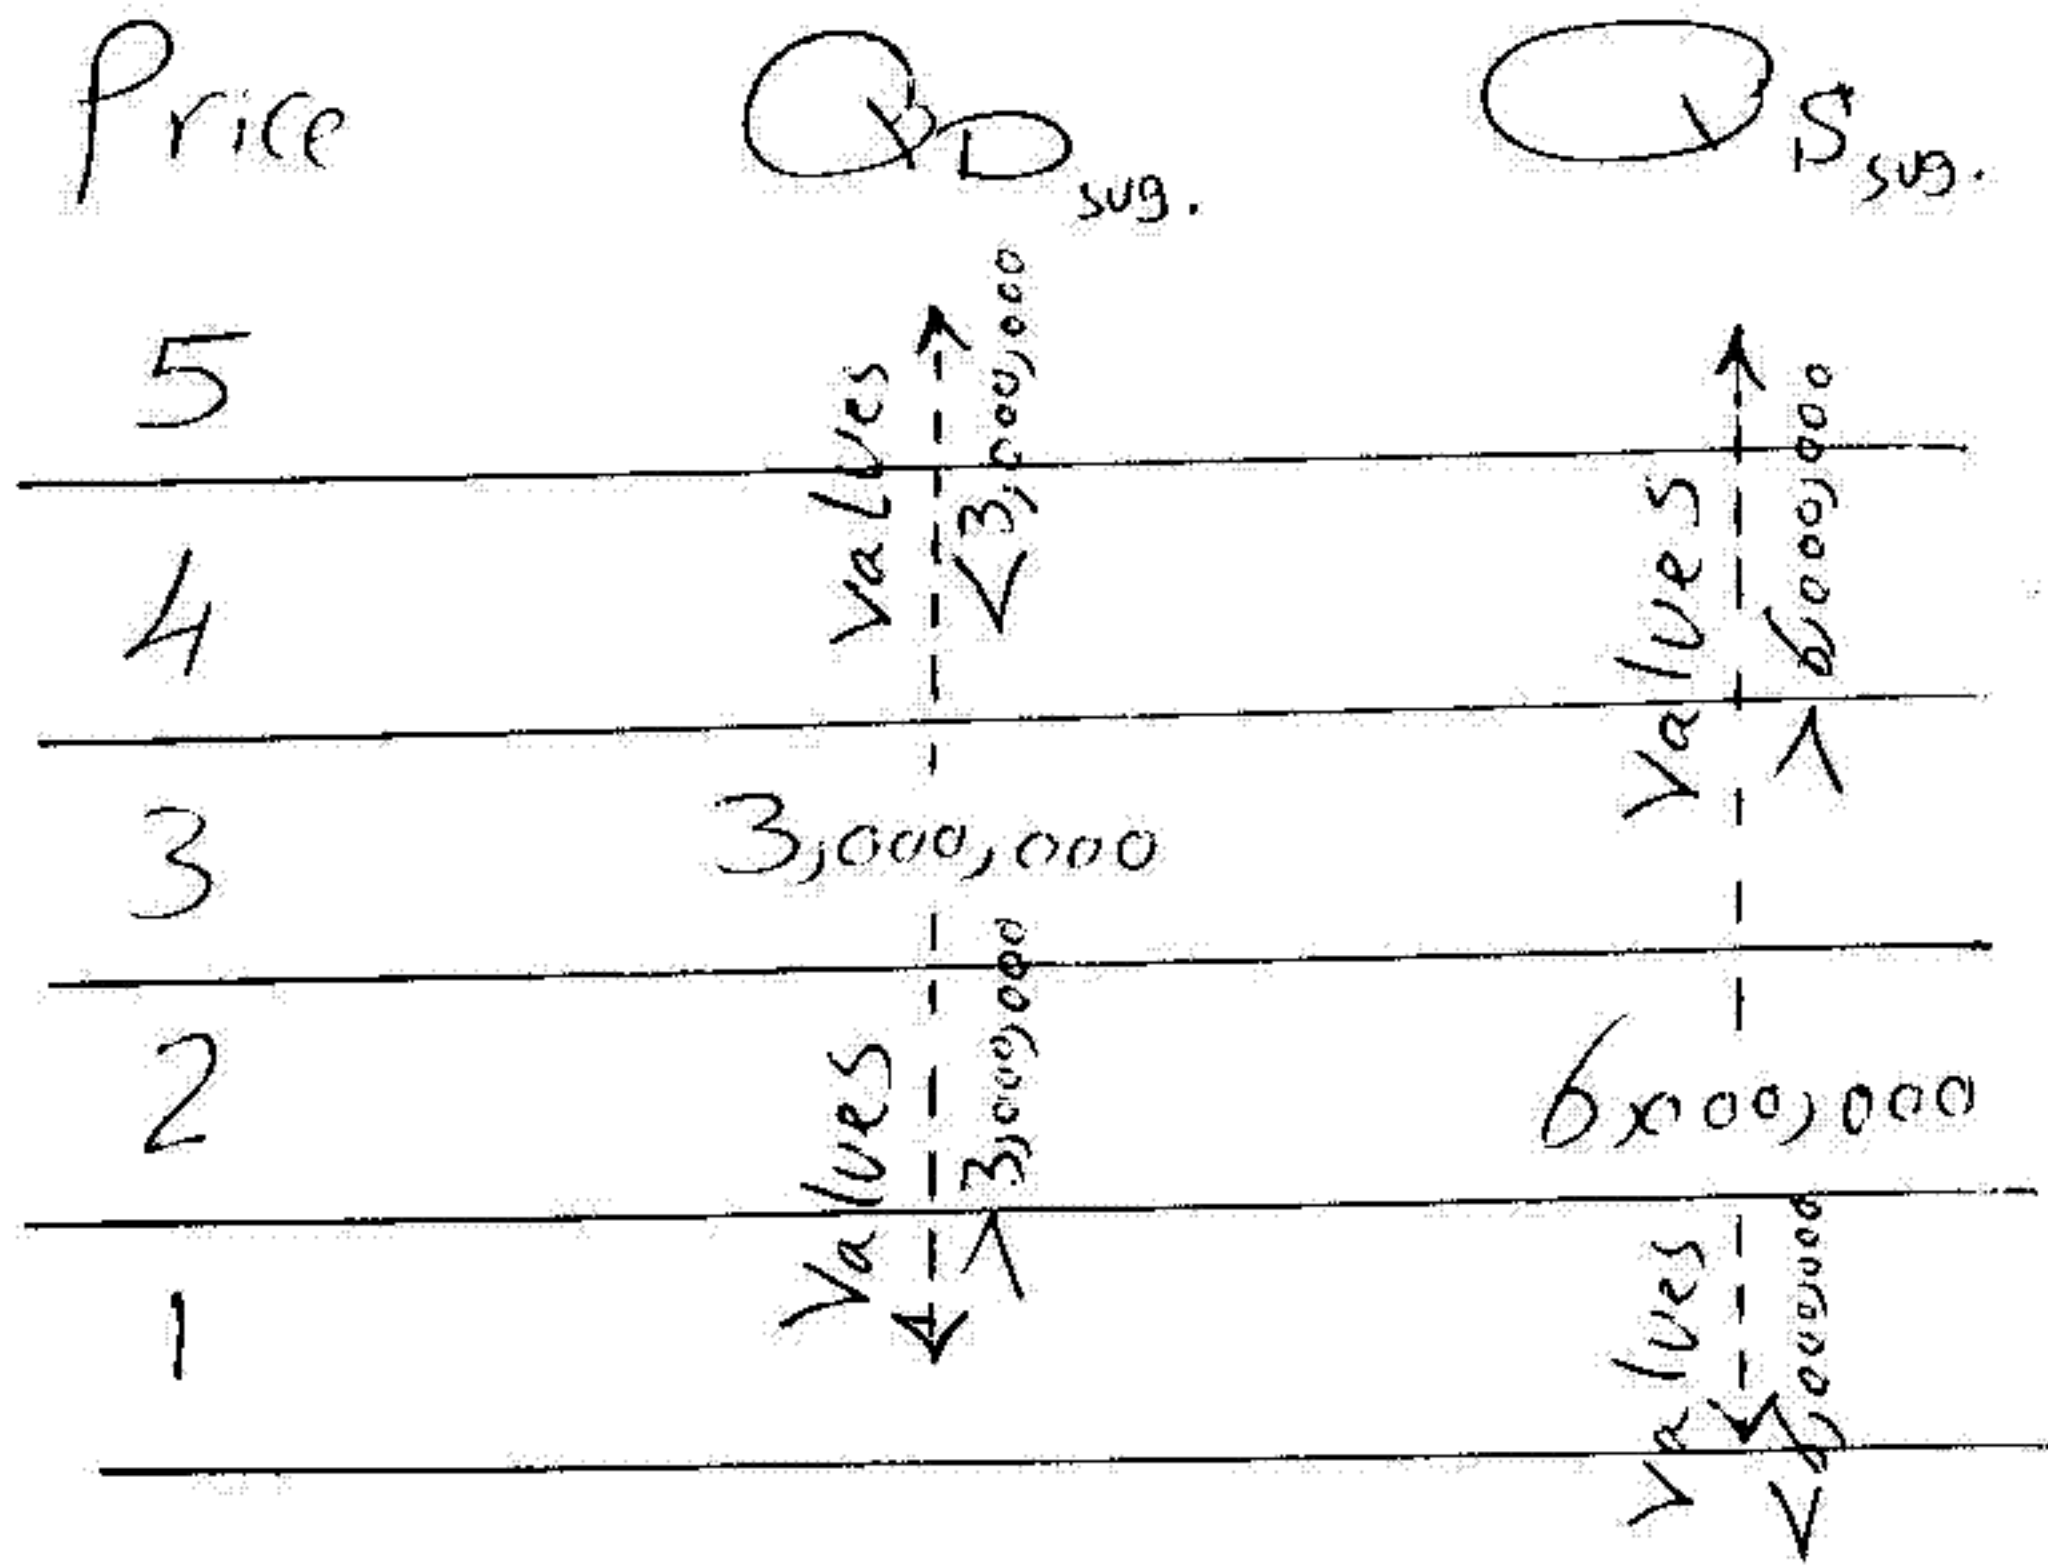 Price QD sug. QS sug.
5
values < 3,000,000
4
values > 6,000,000
3 3,000,000
2 6,000,000
values > 3,000,000
1
values < 6,000,000